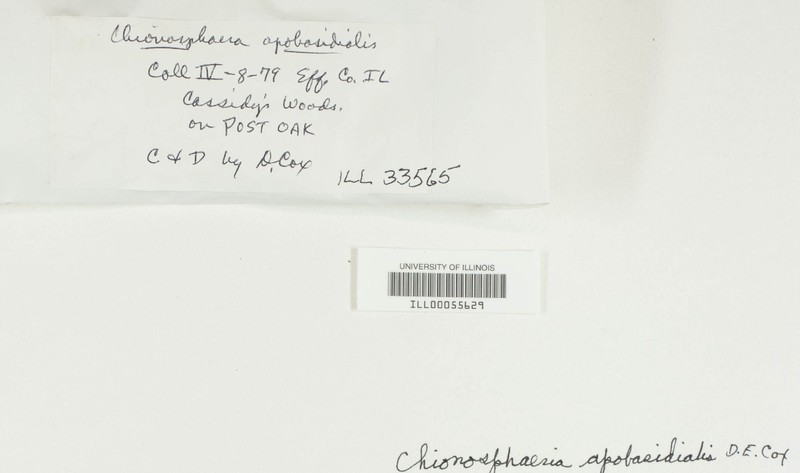 Chionosphaera apobasidialis
Coll IV-8-79 Eff. Co. IL
Cassidy's Woods.
on POST OAK
C & D by D. Cox
ILL 33565
UNIVERSITY OF ILLINOIS
ILL00055629
Chionosphaeria apobasidialis D.E. Cox